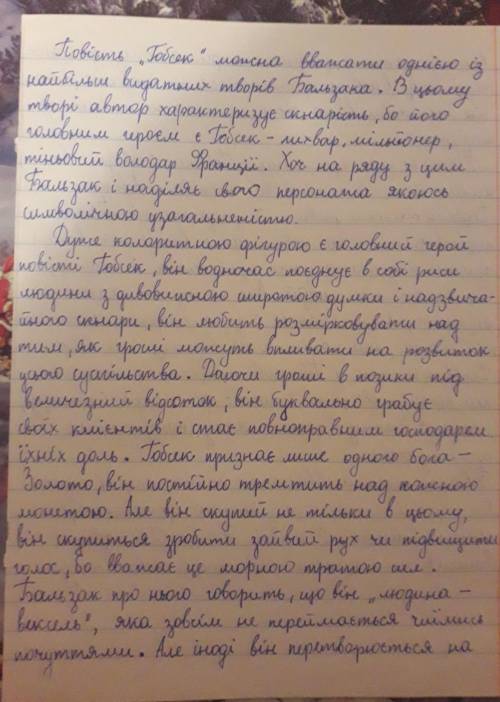 Повість „Гобсек" можна вважати однією із
найбільш видатних творів Бальзака. В цьому
творі автор характеризує скнарість, бо його
головним героєм є Гобсек - лихвар, мільйонер,
тіньовий володар Франції. Хоч на ряду з цим
Бальзак і наділяє свого персонажа якоюсь
символічною узагальненістю.
Дуже колоритною фігурою є головний герой
повісті Гобсек, він водночас поєднує в собі риси
людини з дивовижною широтою думки і надзвича-
йного скнари, він любить розмірковувати над
тим, як гроші можуть впливати на розвиток
цього суспільства. Даючи гроші в позики під
величезний відсоток, він буквально грабує
своїх клієнтів і стає повноправним господарем
їхніх доль. Гобсек признає лише одного бога -
Золото, він постійно тремтить над кожною
монетою. Але він скупий не тільки в цьому,
він скупиться зробити зайвий рух чи підвищити
голос, бо вважає це марною тратою сил.
Бальзак про нього говорить, що він „людина -
вексель", яка зовсім не переймається чиїмись
почуттями. Але іноді він перетворюється на